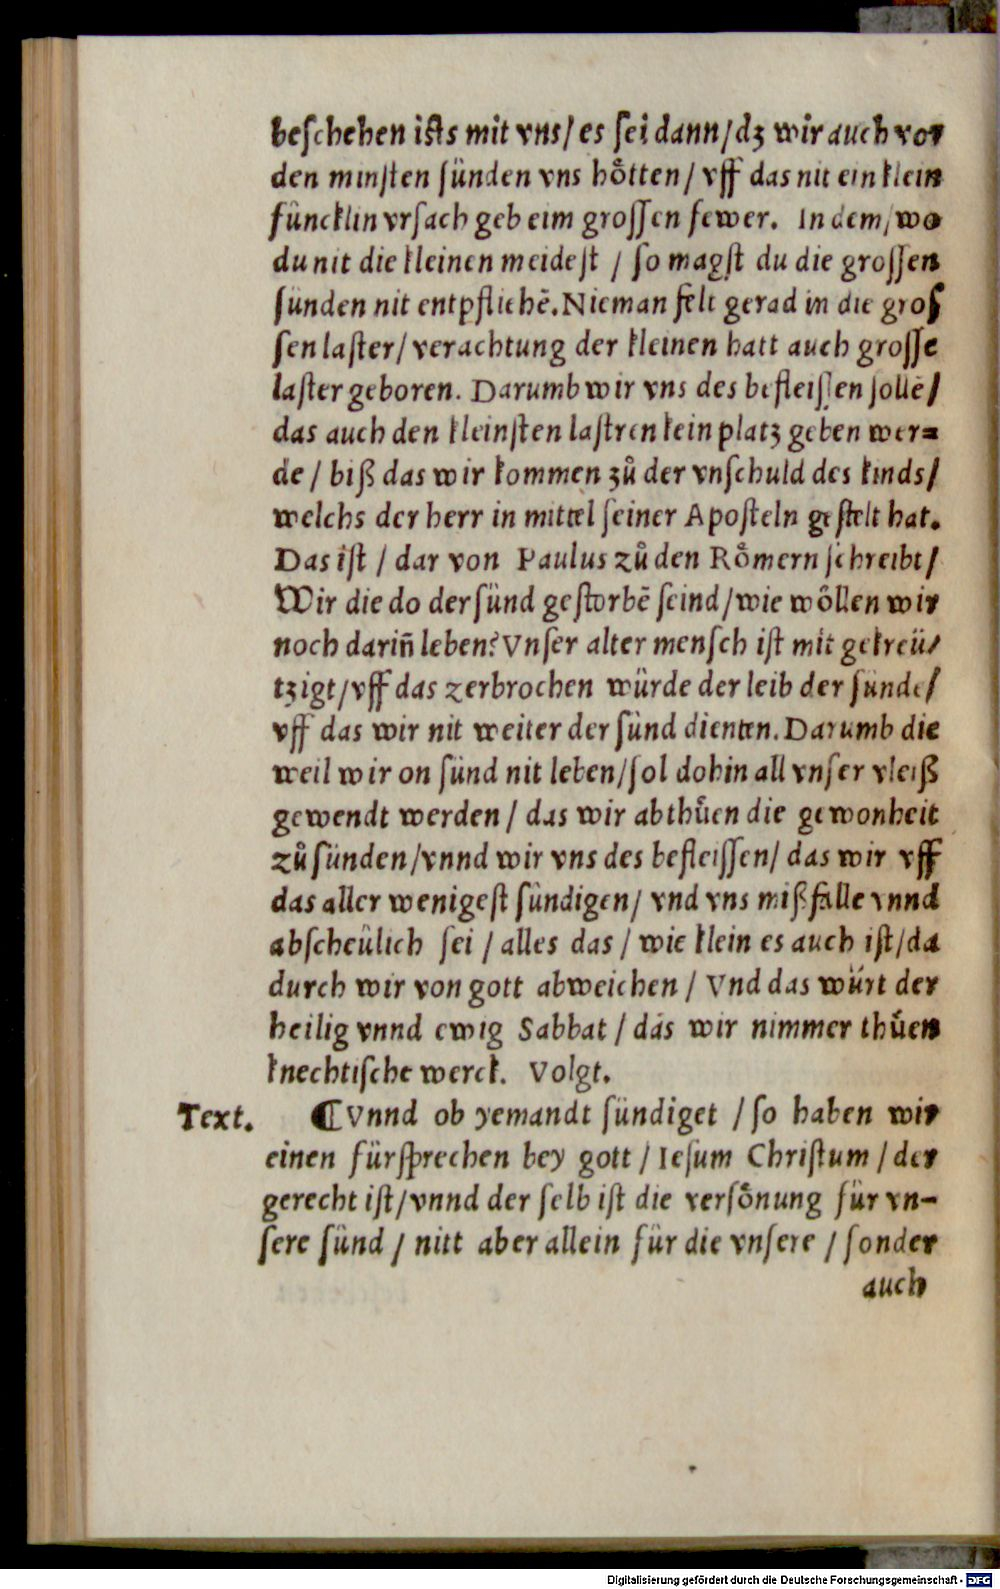 beſchehen iſts mit vns/ es ſei dann/ dʒ wir auch vor
den minſten ſünden vns hoͤtten/ vff das nit ein klein
füncklin vrſach geb eim groſſen fewer. In dem/ wo
du nit die kleinen meideſt / ſo magſt du die groſſen
ſünden nit entpfliehē. Nieman felt gerad in die groſ
ſen laſter/ verachtung der kleinen hatt auch groſſe
laſter geboren. Darumb wir vns des befleiſſen ſollē/
das auch den kleinſten laſtren kein platz geben wer=
de / biß das wir kommen zuͦ der vnſchuld des kinds/
welchs der herr in mittel ſeiner Apoſteln geſtelt hat.
Das iſt / dar von Paulus zuͦ den Roͤmern ſchreibt/
Wir die do der ſünd geſtorbē ſeind/ wie woͤllen wir
noch darin̄ leben? Vnſer alter menſch iſt mit gekreü/
tzigt/ vff das zerbrochen würde der leib der ſünde/
vff das wir nit weiter der ſünd dienten. Darumb die
weil wir on ſünd nit leben/ ſol dohin all vnſer vleiß
gewendt werden / das wir abthuͤen die gewonheit
zuͦ ſünden/ vnnd wir vns des befleiſſen/ das wir vff
das aller wenigeſt ſündigen/ vnd vns mißfalle vnnd
abſcheülich ſei / alles das / wie klein es auch iſt/ da
durch wir von gott abweichen / Vnd das würt der
heilig vnnd ewig Sabbat / das wir nimmer thuͤen
knechtiſche werck. Volgt.
Text. ¶ Vnnd ob yemandt ſündiget / ſo haben wir
einen fürſprechen bey gott / Ieſum Chriſtum / der
gerecht iſt/ vnnd der ſelb iſt die verſoͤnung für vn-
ſere ſünd / nitt aber allein für die vnſere / ſonder
auch
Digitalisierung gefördert durch die Deutsche Forschungsgemeinschaft - DFG